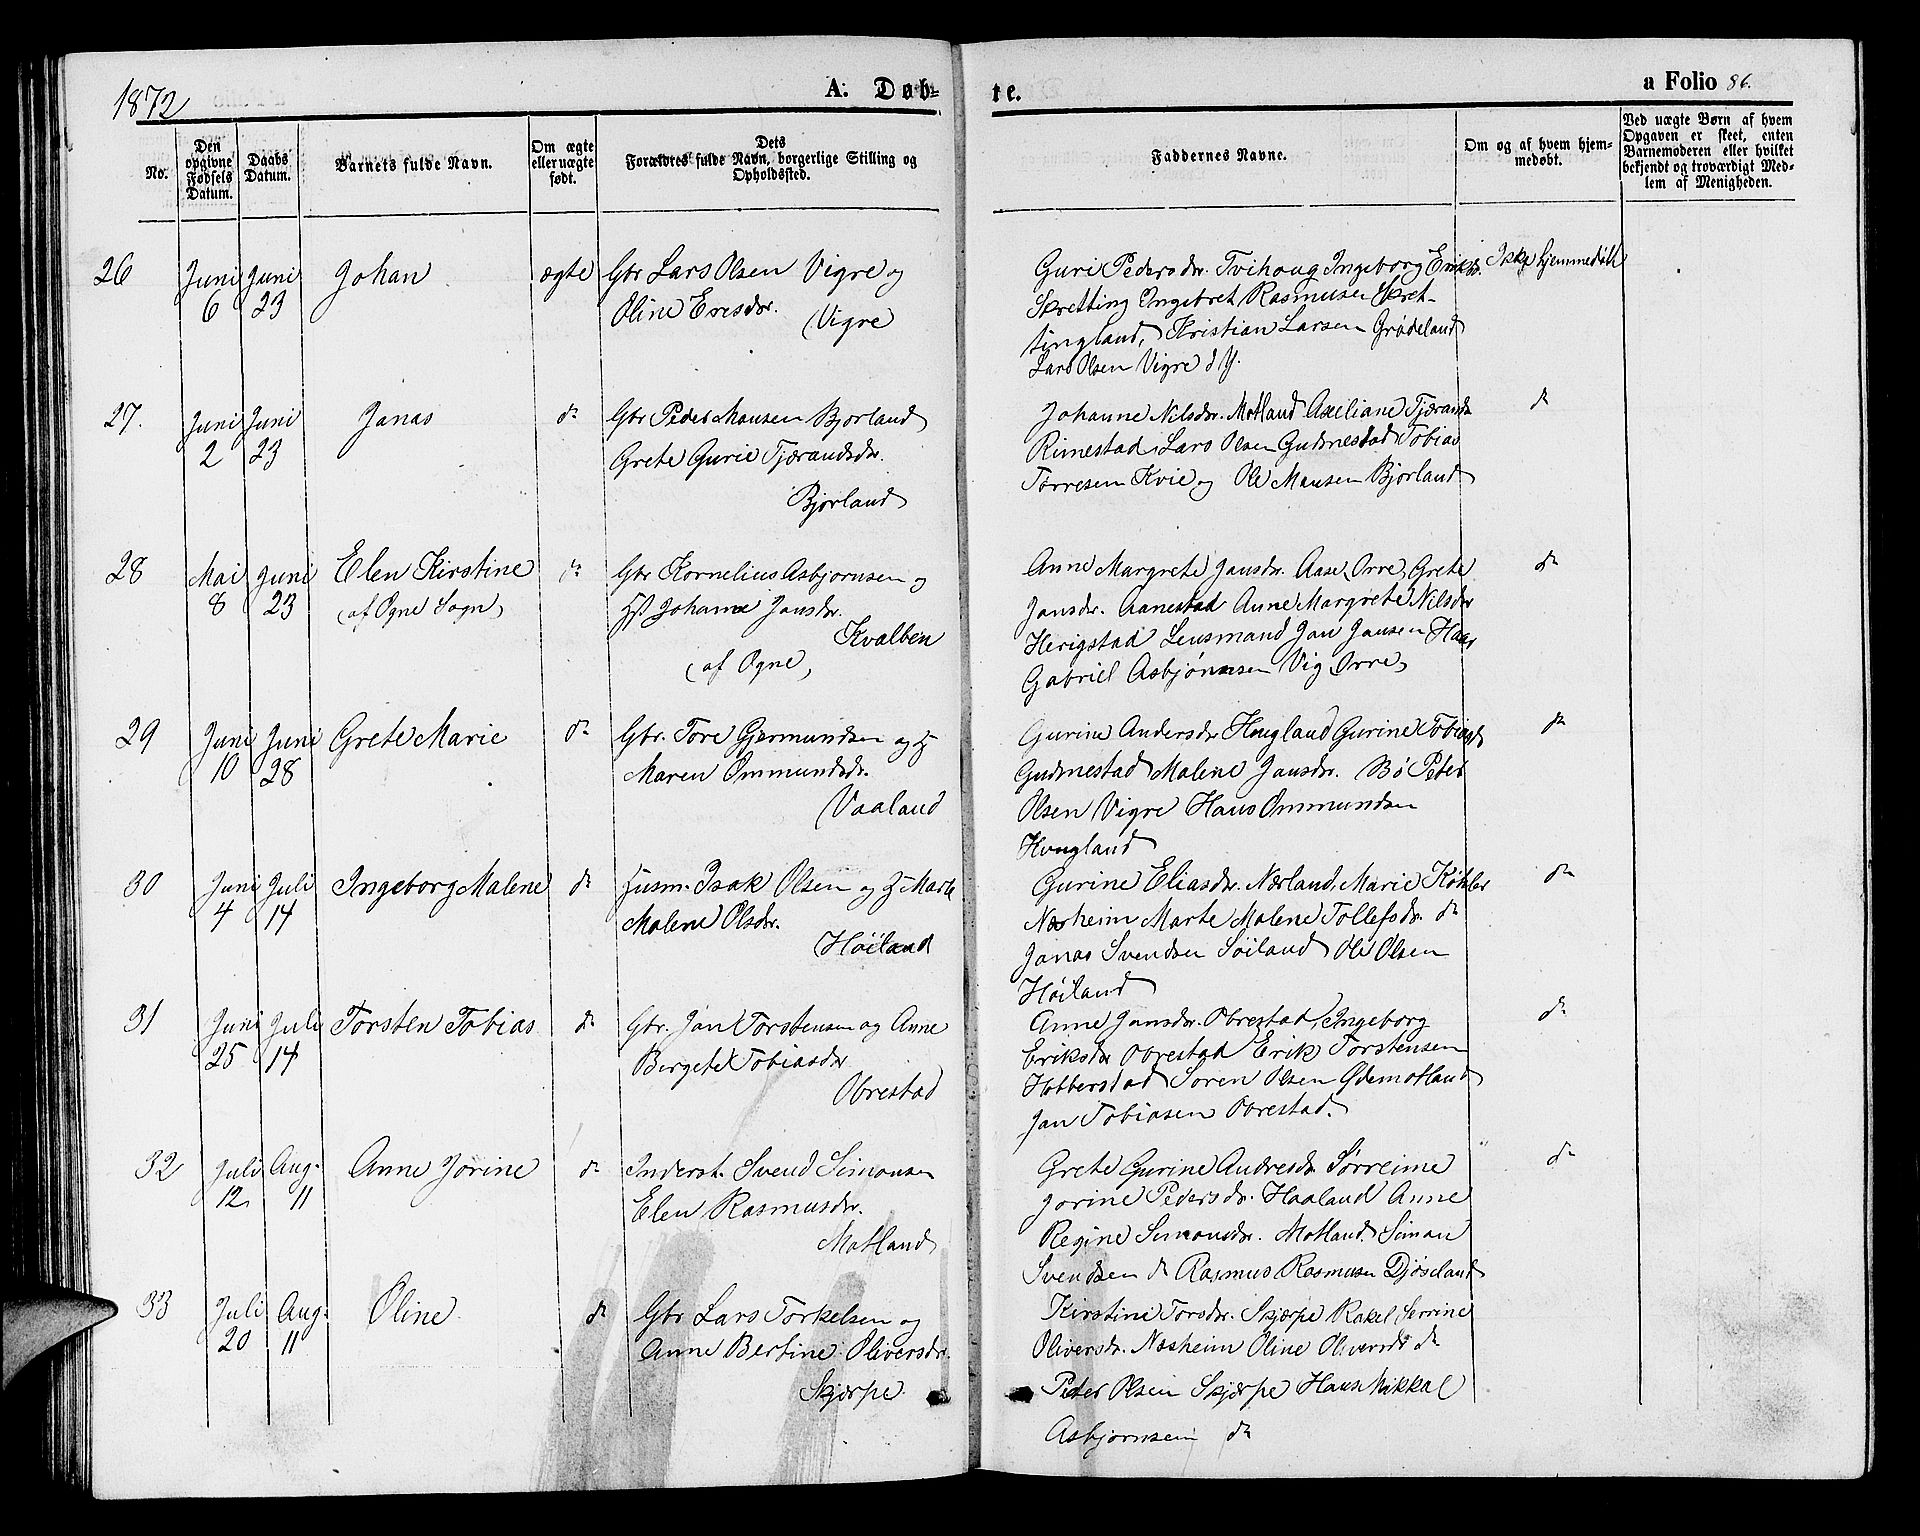 1872
A. Døb-
te.
a Folio 86.
No.
Den opgivne Fødsels Datum.
Daabs Datum.
Barnets fulde Navn.
Om ægte eller uægte født.
Dets Forældres fulde Navn, borgerlige Stilling og Opholdssted.
Faddernes Navne.
Om og af hvem hjemmedøbt.
Ved uægte Børn af hvem Opgaven er skeet, enten Barnemoderen eller hvilket bekjendt og troværdigt Medlem af Menigheden.
26 Juni 6 Juni 23 Johan ægte
Gbr Lars Olsen Vigre og
Oline Ersdr.
Vigre
Guri Pedersdr. Tvihoug Ingeborg Eriksdr.
Skretting Ingebret Rasmusen Skret-
tingland, Kristian Larsen Grødeland
Lars Olsen Vigre d.Y.
Ikke hjemmedøbt
27. Juni 2 Juni 23 Jonas do
Gbr Peder Monsen Bjorland
Grete Gurie Tjærandsdr.
Bjorland
Johanne Nilsdr. Motland Axeliane Tjærandsdr
Rimestad, Lars Olsen Gudmestad Tobias
Tørresen Kvie og Ole Monsen Bjorland
do
28 Mai 8 Juni 23 Elen Kirstine do
(af Ogne Sogn)
Gbr Kornelius Asbjornsen og
Hst Johanne Jonsdr.
Kvalben
(af Ogne)
Anne Margrete Jonsdr. Aase, Orre, Grete
Jonsdr. Aanestad Anne Margrete Nilsdr
Herigstad Lensmand Jon Jonsen Haar
Gabriel Asbjørnsen Vig Orre
do
29 Juni 10 Juni 28 Grete Marie do
Gbr. Tore Gjermundsen og H
Maren Ommundsdr.
Vaaland
Gurine Andersdr Hougland Gurine Tobiasdr
Gudmestad Malene Jonsdr. Bø Peder
Olsen Vigre Hans Ommundsen
Hougland
do
30 Juni 4 Juli 14 Ingeborg Malene do
Husm. Isak Olsen og H Marte
Malene Olsdr.
Høiland
Gurine Eliasdr. Nærland, Marie Köhler
Næsheim Marte Malene Tollefsdr. do
Jonas Svendsen Søiland Ole Olsen
Høiland
do
31 Juni 25 Juli 14 Torsten Tobias do
Gbr. Jon Torstensen og Anne
Bergete Tobiasdr
Obrestad
Anne Jonsdr. Obrestad, Ingeborg
Eriksdr Obrestad Erik Torstensen
Hobberstad Soren Olsen Ødemotland
Jon Tobiasen Obrestad.
do
32 Juli 12 Aug. 11 Anne Jorine do
Inderst. Svend Simonsen
Elen Rasmusdr.
Motland
Grete Gurine Andresdr Sørreime
Jorine Pedersdr. Haaland Anne
Regine Simonsdr. Motland Simon
Svendsen do Rasmus Rasmusen Djøseland
do
33 Juli 20 Aug. 11 Oline do
Gbr Lars Torkelsen og
Anne Bertine Oliversdr.
Skjærpe
Kirstine Torsdr. Skjærpe Rakel Serine
Oliversdr. Næsheim Oline Oliversdr do
Peder Olsen Skjærpe Hans Mikkal
Asbjornsen do